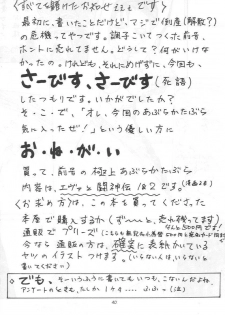 〈すべてを賭けたお知せでです〉
最初に、書いたことだけど、マジで倒産(解散?)
の危機ってやつです。調子こいてつくった前号、
ホントに売れてません。どうして?何がいけな
かったの。けれども、それにめげずに、今回も、
さーびす、さーびす(死語)
したつもりです。いかがでしたか?
そ・こ・で、「オレ、今回のあぶらかたぶら
気に入ったぜ!」という優しい方に
お・ね・が・い
買って、前号の極上あぶらかたぶら
内容は、エヴァと闘神伝1&2です。
〈お求め方〉は、この本を買ってくださった
本屋で購入するか(ず〜〜と、売れ残ってます)
通販でプリーズ
今なら通販の方は、確実に表紙かいている
ヤツのイラストつけます。(いらない人は、いらないと
書いてください)
。でも、そーいうふうに書いても、いつも、こないんだよね。
アンケートのときも、たしか1ケ‥‥‥ふふっ(泣)